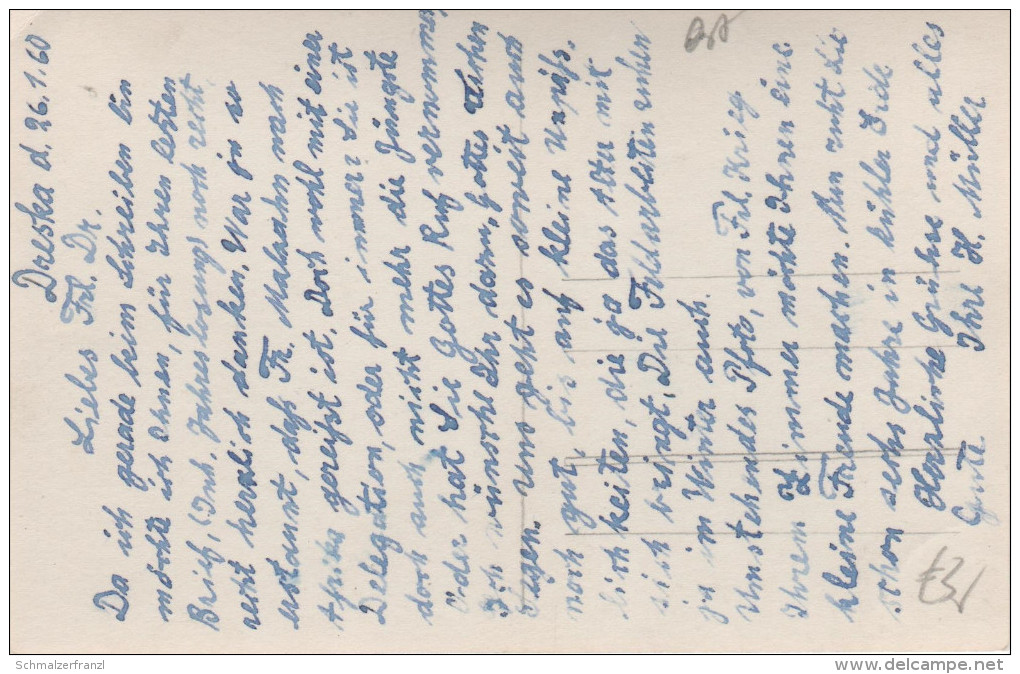 Dreska d. 26.1.60
Liebes Frl. Dr.
Da ich gerade beim Schreiben bin
möchte ich Ihnen, für Ihren letzten
Brief, (Inh. Jahreslosung) noch recht
recht herzlich danken. War ja so
erstaunt, daß Fr. Malzahn nach
Afrika gereißt ist. Doch wohl mit einer
Delegation, oder für immer? Sie ist
doch auch nicht mehr die Jüngste
Oder hat Sie Gottes Ruf vernommen
Ich wünsche Ihr dann, Gottes reichen
Segen. Uns geht es soweit auch
noch gut, bis auf kleine Unpäß-
lichkeiten, die ja das Alter mit
sich bringt. Die Feldarbeiten ruhen
ja im Winter auch.
Umstehendes Photo, von Frl. Krieg
Ihrem Zimmer möchte Ihnen eine
kleine Freude machen. Nun ruht sie
schon sechs Jahre in kühler Erde
Herzliche Grüße und alles
Gute Ihre H. Müller
Schmalzerfranzl
www.delcampe.net